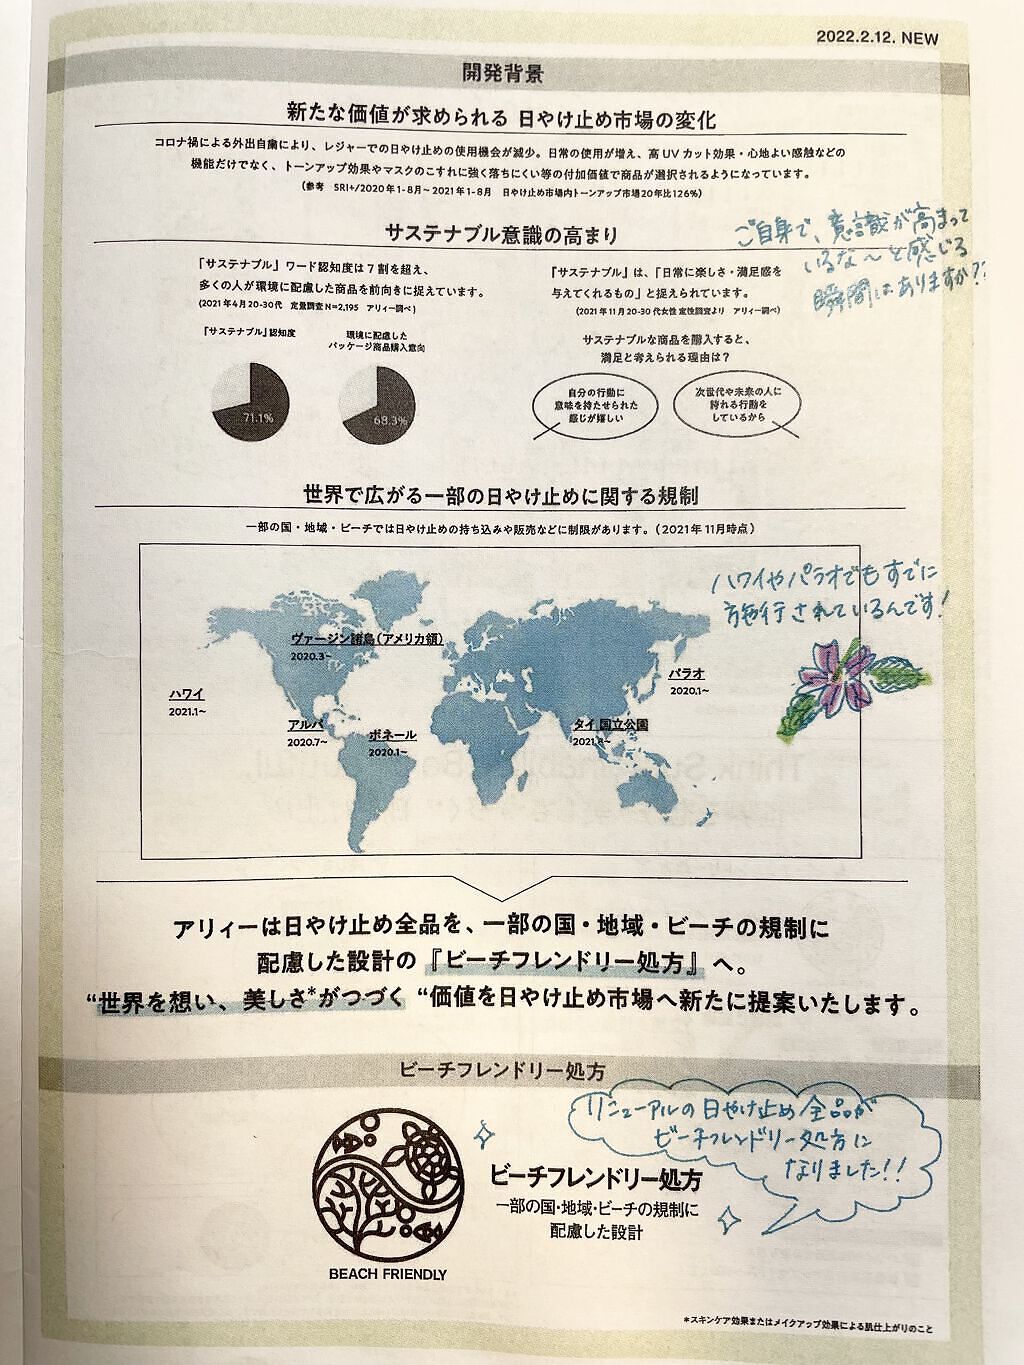 2022.2.12. NEW
開発背景
新たな価値が求められる 日やけ止め市場の変化
コロナ禍による外出自粛により、レジャーでの日やけ止めの使用機会が減少。日常の使用が増え、高UVカット効果・心地よい感触などの
機能だけでなく、トーンアップ効果やマスクのこすれに強く落ちにくい等の付加価値で商品が選択されるようになっています。
(参考 SRI+/2020年1-8月~2021年1-8月 日やけ止め市場内トーンアップ市場20年比126%)
サステナブル意識の高まり
ご自身で、意識が高まって
いるな〜と感じる
瞬間はありますか??
「サステナブル」ワード認知度は7割を超え、
多くの人が環境に配慮した商品を前向きに捉えています。
(2021年4月20-30代 定量調査N=2,195 アリィー調べ)
「サステナブル」認知度
環境に配慮した
パッケージ商品購入意向
71.1%
68.3%
『サステナブル』は、「日常に楽しさ・満足感を
与えてくれるもの」と捉えられています。
(2021年11月20-30代女性 定性調査より アリィー調べ)
サステナブルな商品を購入すると、
満足と考えられる理由は?
自分の行動に
意味を持たせられた
感じが嬉しい
次世代や未来の人に
誇れる行動を
しているから
世界で広がる一部の日やけ止めに関する規制
一部の国・地域・ビーチでは日やけ止めの持ち込みや販売などに制限があります。(2021年11月時点)
ハワイやパラオでもすでに
施行されているんです!
ヴァージン諸島(アメリカ領)
2020.3~
ハワイ
2021.1~
パラオ
2020.1~
アルバ
2020.7~
ボネール
2020.1~
タイ 国立公園
2021.8~
アリィーは日やけ止め全品を、一部の国・地域・ビーチの規制に
配慮した設計の『ビーチフレンドリー処方』へ。
“世界を想い、美しさ*がつづく “価値を日やけ止め市場へ新たに提案いたします。
ビーチフレンドリー処方
リニューアルの日やけ止め全品が
ビーチフレンドリー処方に
なりました!!
ビーチフレンドリー処方
一部の国・地域・ビーチの規制に
配慮した設計
BEACH FRIENDLY
*スキンケア効果またはメイクアップ効果による肌仕上がりのこと